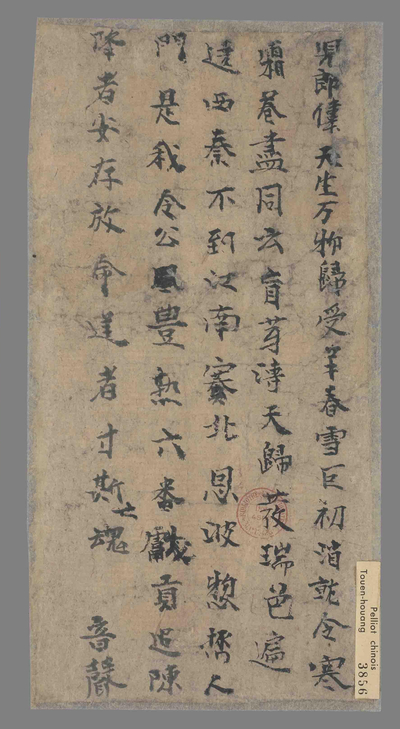 兒郎偉天生万物歸受羊春雪巨初消詭令寒
霜卷盡同云育芽溥天歸荍瑞邑遍
逵西秦不到江南賽北恩波惣
人
門是我令公豊熟六番獻貢追陳
降者安存放命逆者寸斯亡魂 音聲
Pelliot chinois
Touen-houang
3856